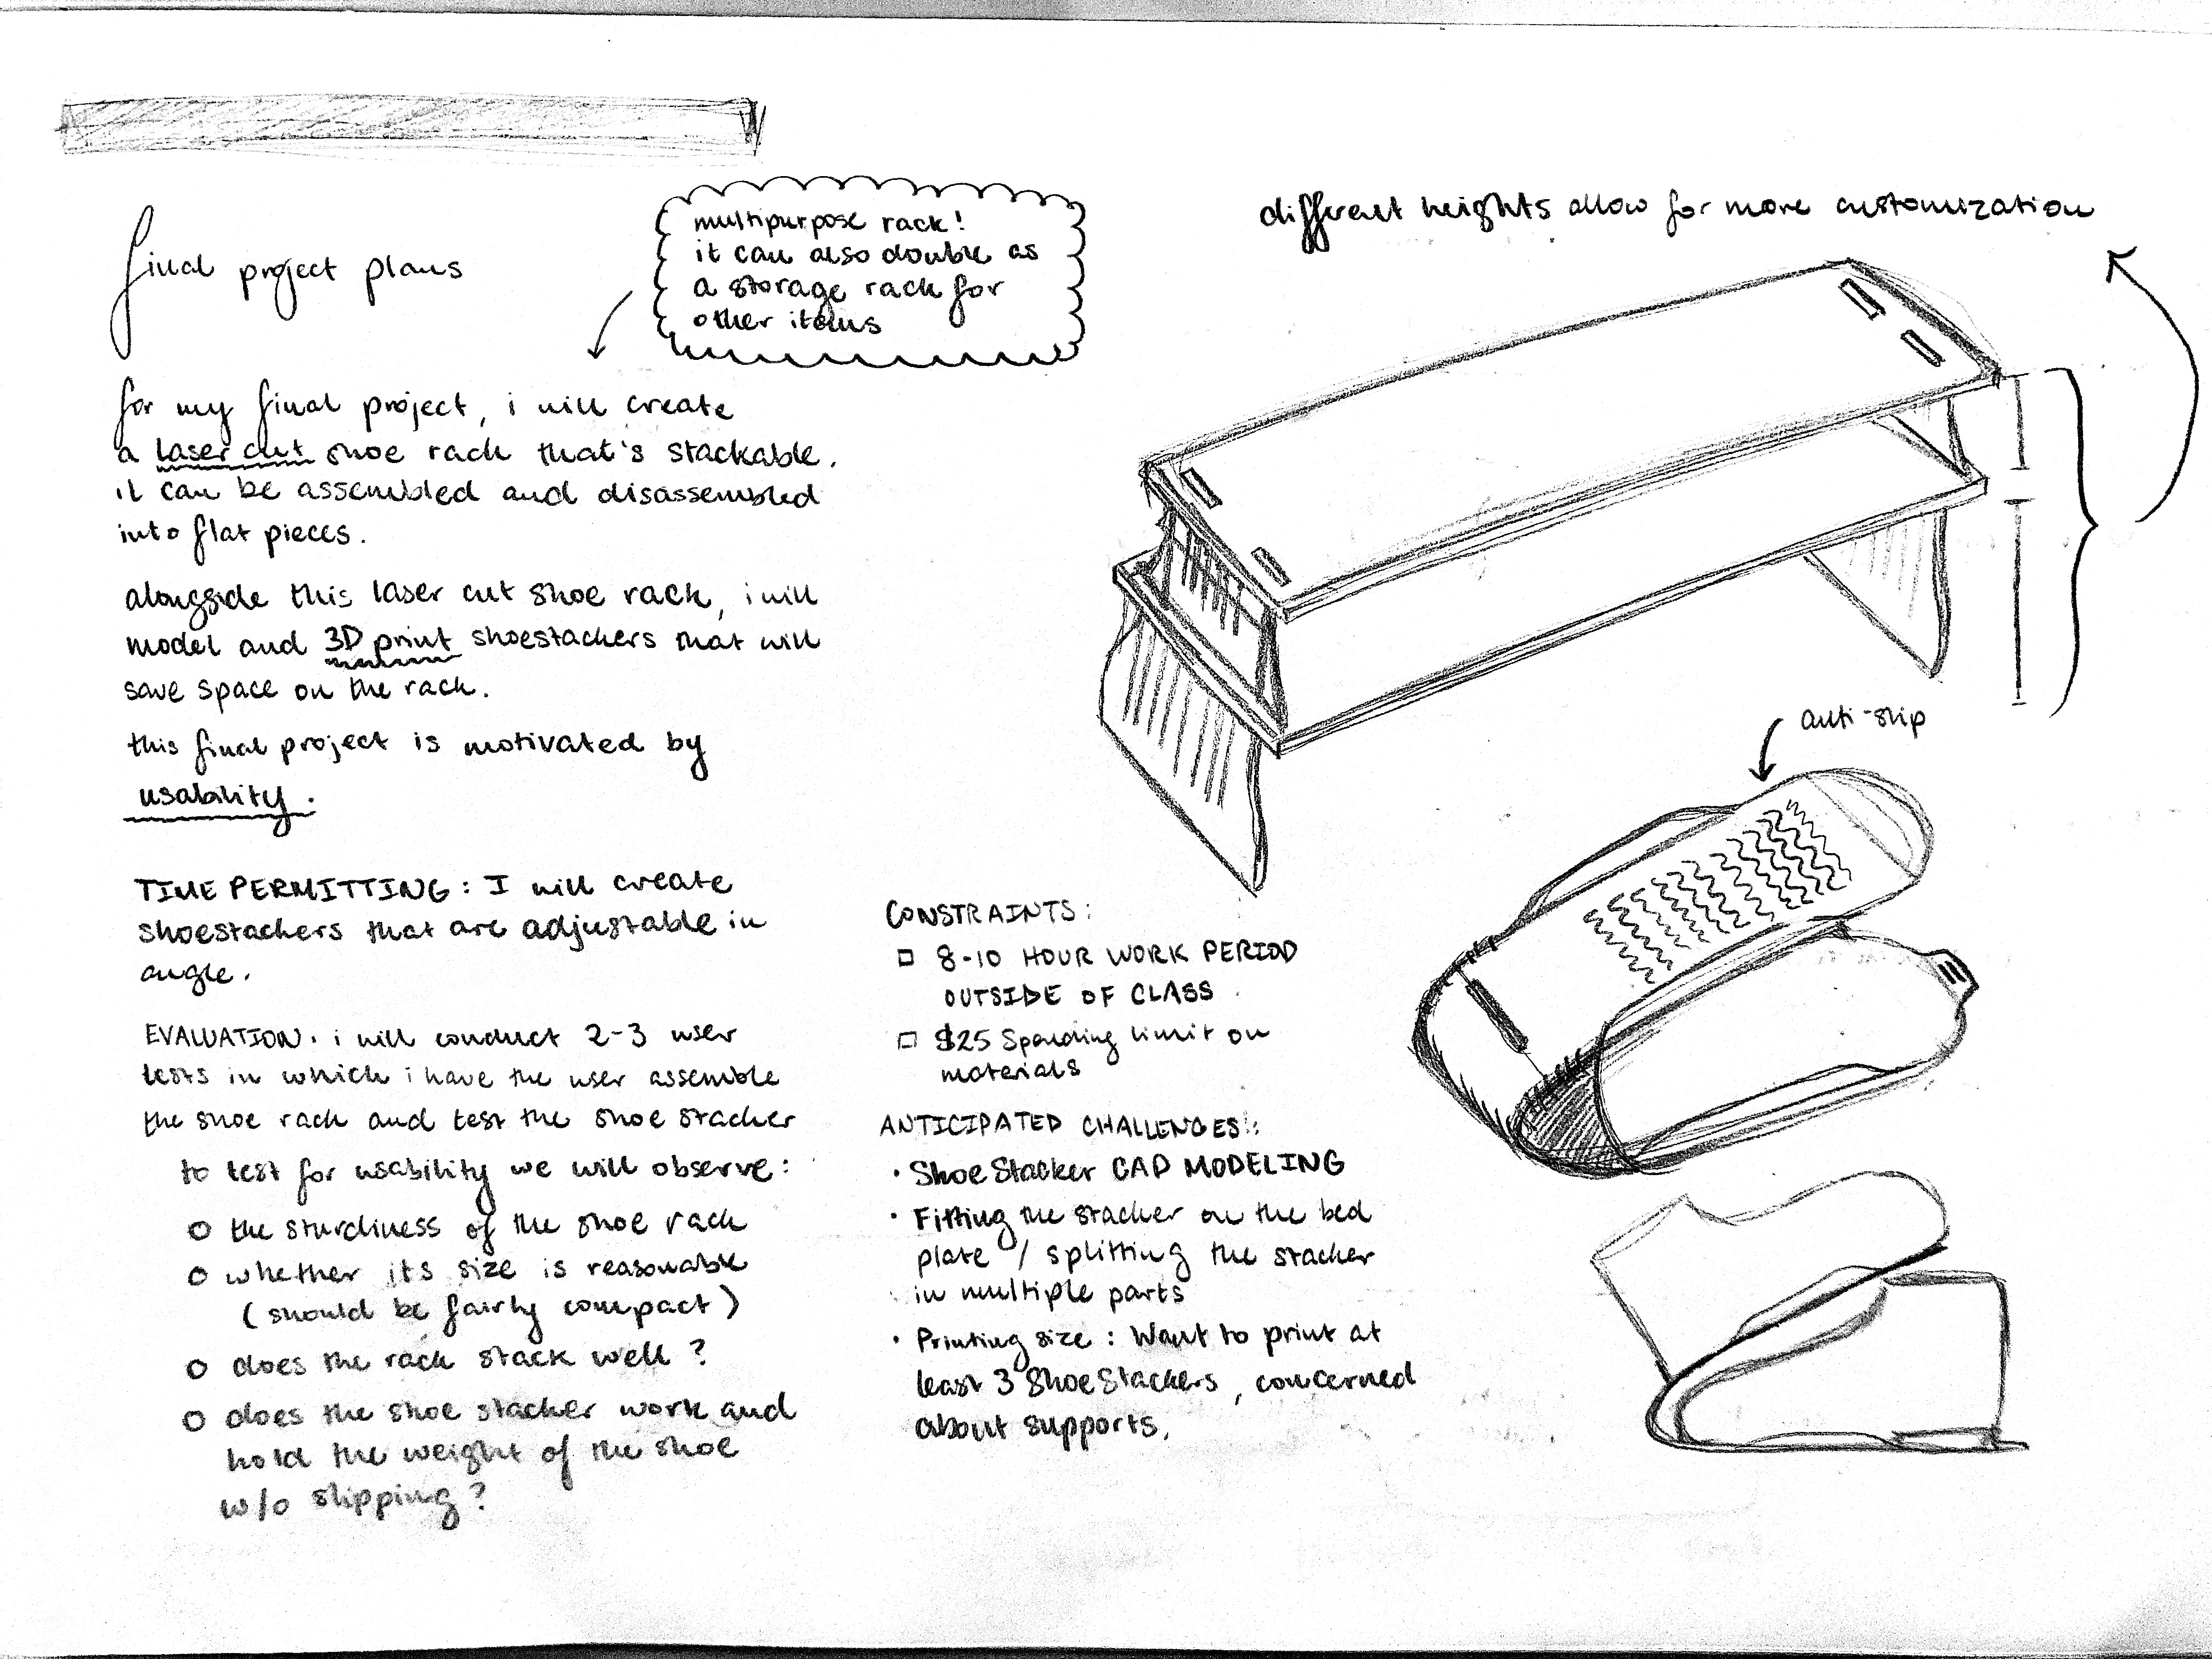 final project plans
multipurpose rack!
it can also double as
a storage rack for
other items
for my final project, i will create
a laser cut shoe rack that's stackable.
it can be assembled and disassembled
into flat pieces.
alongside this laser cut shoe rack, i will
model and 3D print shoestackers that will
save space on the rack.
this final project is motivated by
usability.
TIME PERMITTING: I will create
shoestackers that are adjustable in
angle.
EVALUATION. i will conduct 2-3 user
tests in which i have the user assemble
the shoe rack and test the shoe stacker
to test for usability we will observe:
O the sturdiness of the shoe rack
O whether its size is reasonable
(should be fairly compact)
O does the rack stack well?
O does the shoe stacker work and
hold the weight of the shoe
w/o slipping?
CONSTRAINTS:
□ 8-10 HOUR WORK PERIOD
OUTSIDE OF CLASS
□ $25 Spending limit on
materials
ANTICIPATED CHALLENGES:
• ShoeStacker CAD MODELING
• Fitting the stacker on the bed
plate / splitting the stacker
in multiple parts
• Printing size: Want to print at
least 3 ShoeStackers, concerned
about supports.
different heights allow for more customization
anti-slip